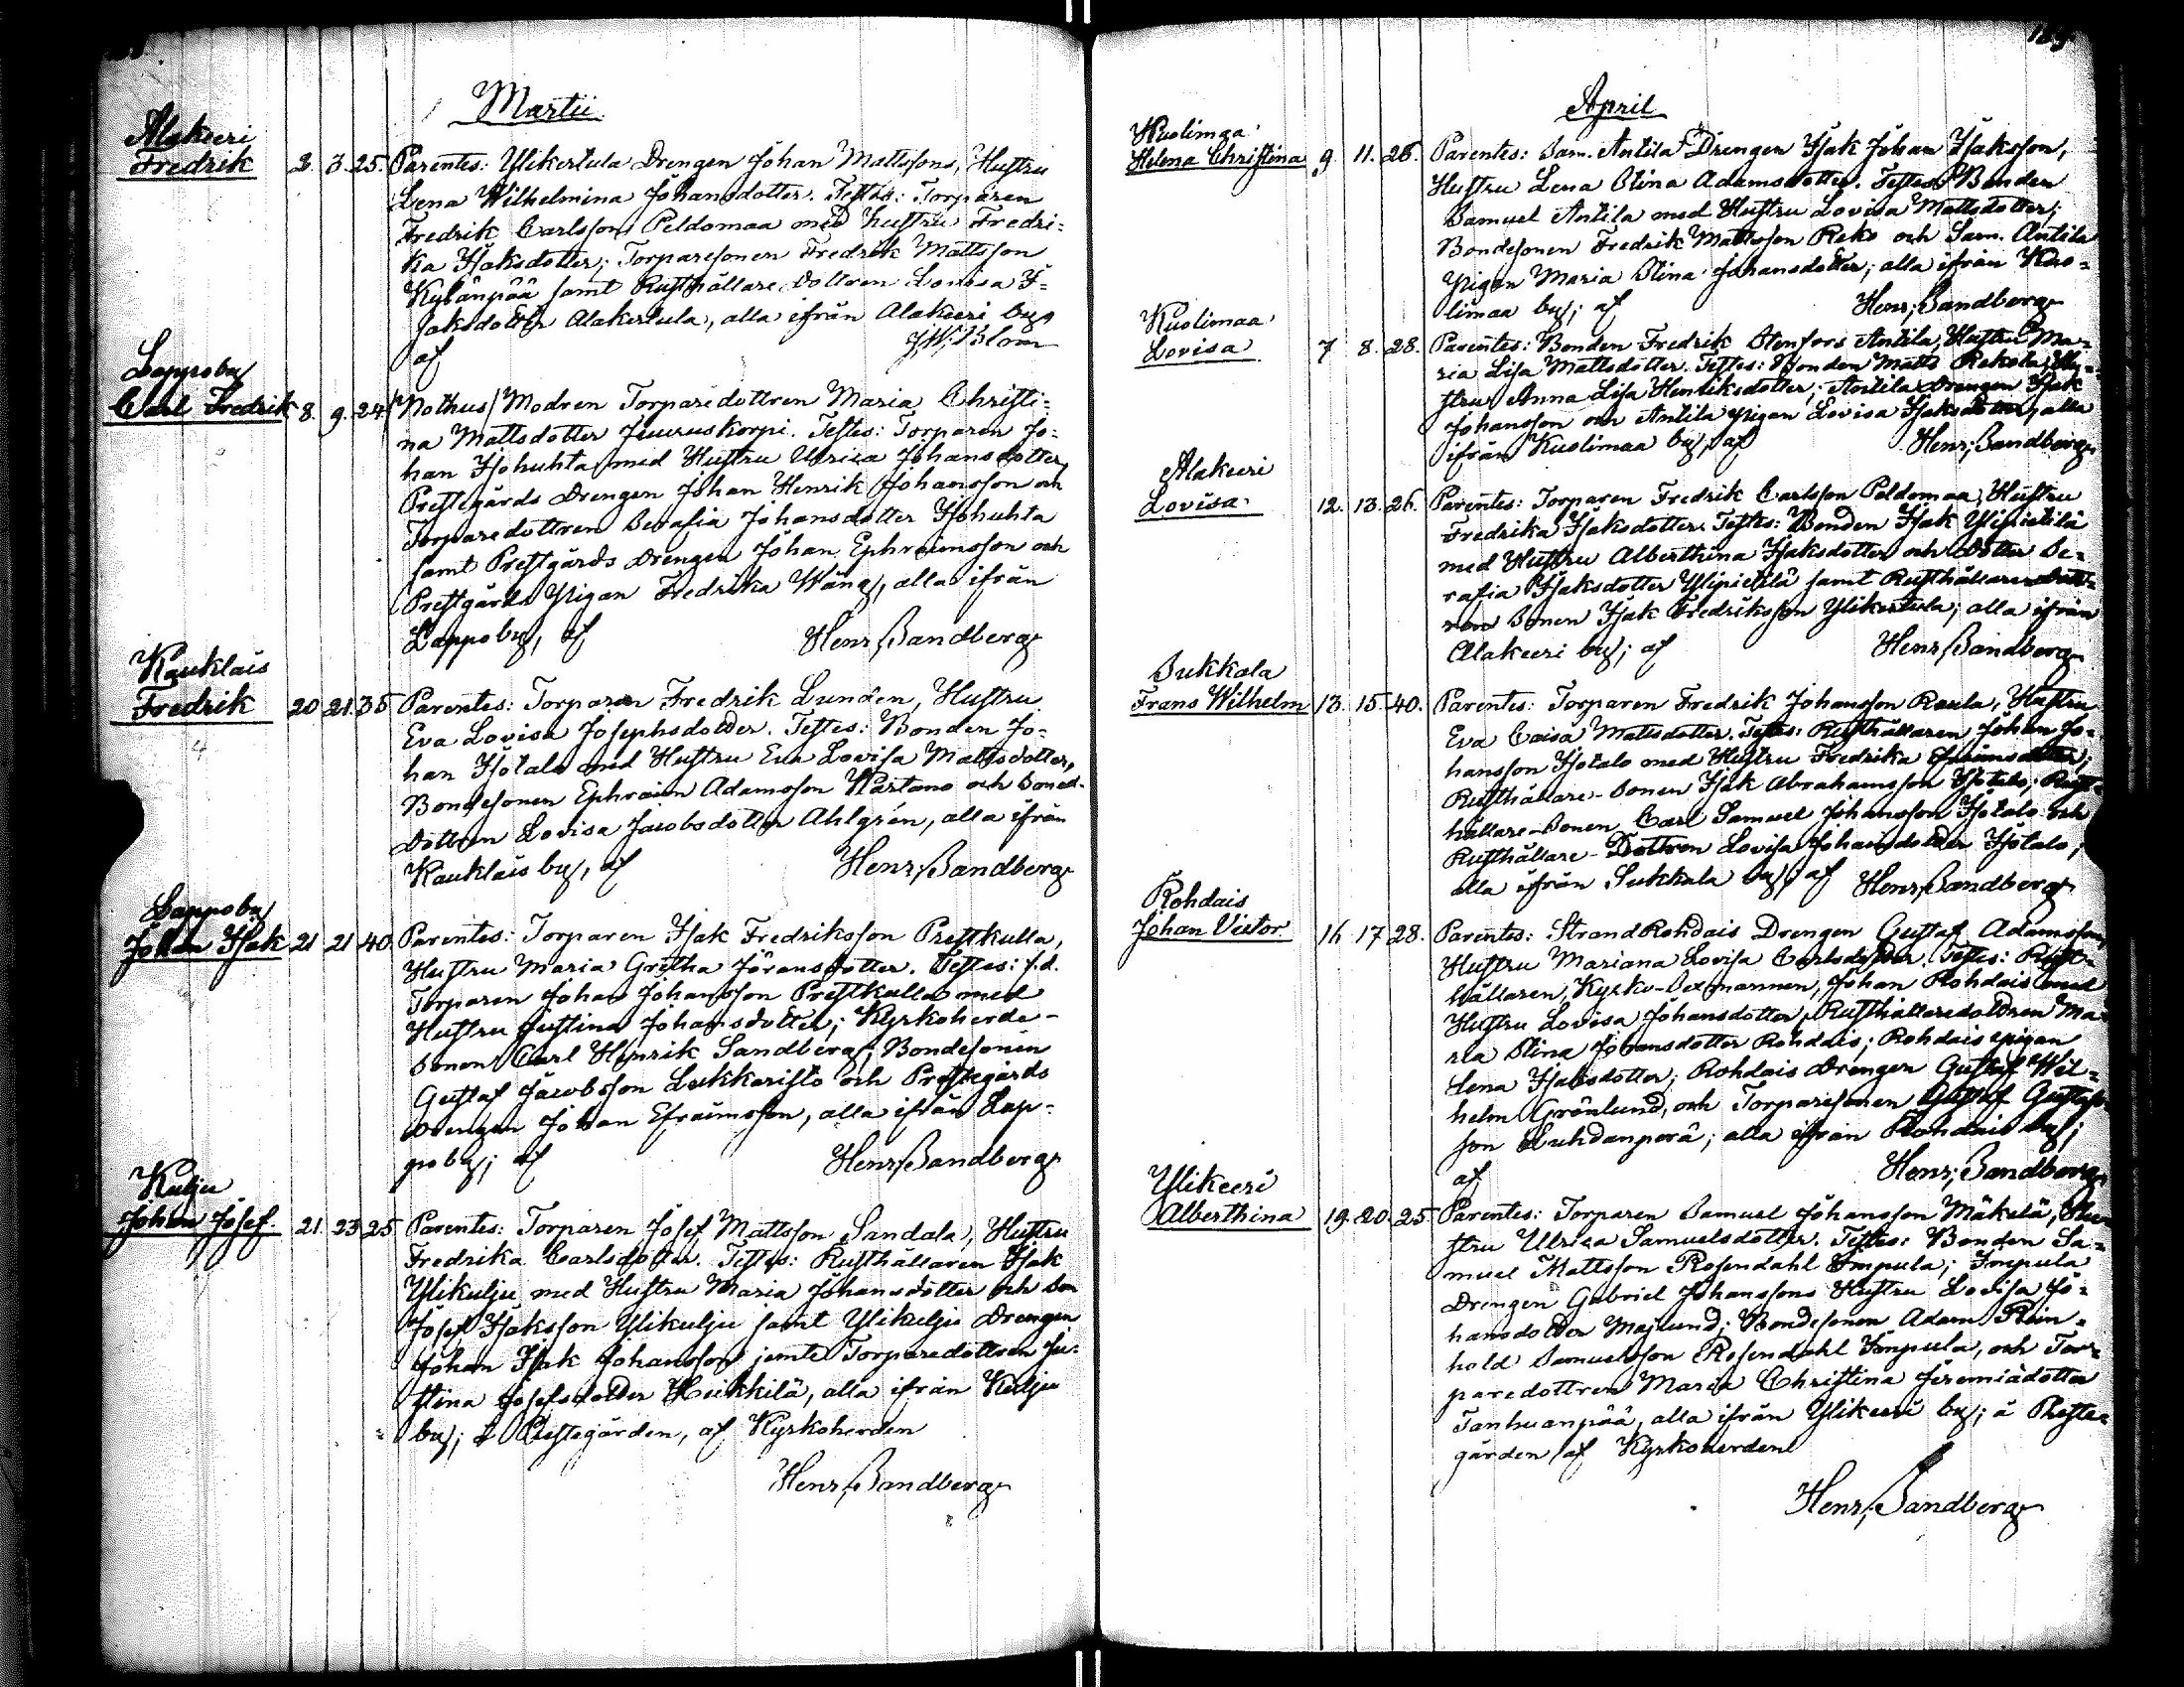 Martii
Alakeeri
Fredrik 2. 3. 25. Parentes: Ylikertula Drengen Johan Mattssons, Hustru
Lena Wilhelmina Johansdotter. Testes: Torparen
Fredrik Carlsson Peldomaa med hustru Fredri=
ka Isaksdotter; Torparesonen Fredrik Mattsson
Kylänpää samt Rusthållare dottren Lovisa I=
saksdotter Alakertula, alla ifrån Alakeeri by,
af J.W. Blom
Lappoby
Carl Fredrik 8. 9. 24. /Nothus/ Modren Torparedottren Maria Christi=
na Mattsdotter. Testes: Torparen Jo=
han Isohuhta med Hustru Ulrica Johansdotter,
Prestegårds Drengen Johan Henrik Johansson och
Torparedottren Serafia Johansdotter Isohuhta
samt Prestgårds Drengen Johan Ephraimsson och
Prestgårds Pigan Fredrika Wäng, alla ifrån
Lappo by, af Henr. Sandberg
Kauklais
Fredrik 20 21. 35 Parentes: Torparen Fredrik Lunden, Hustru
Eva Lovisa Josephsdotter. Testes: Bonden Jo=
han Isotalo med Hustru Eva Lovisa Mattsdotter,
Bondesonen Ephraim Adamsson Kartano och Bonde-
dottren Lovisa Jacobsdotter Ahlgrén, alla ifrån
Kauklais by, af Henr. Sandberg
Lappoby
Johan Isak 21 21 40. Parentes: Torparen Isak Fredriksson Prestkulla,
Hustru Maria Gretha Göransdotter. Testes: f.d.
Torparen Johan Johansson Prestkulla med
Hustru Justina Johansdotter; Kyrkoherde-
Sonen Carl Henrik Sandberg; Bondesonen
Gustaf Jacobsson Lukkaristo och Prestegårds
Drengen Johan Efraimsson, alla ifrån Lap-
po by; af Henr. Sandberg
Kulju
Johan Josef. 21. 23 25 Parentes: Torparen Josef Mattsson Sandala, Hustru
Fredrika Carlsdotter. Testes: Rusthållaren Isak
Ylikulju med Hustru Maria Johansdotter och Son
Josef Isaksson Ylikulju samt Ylikulju Drengen
Johan Isak Johansson jemte Torparedottren Ju-
stina Josefsdotter Heikkilä, alla ifrån Kulju
by; å Prestegården, af Kyrkoherden
Henr. Sandberg
April
Kuolimaa
Helena Christina 9. 11. 26. Parentes: Sam. Antila Drengen Isak Johan Isaksson,
Hustru Lena Stina Adamsdotter. Testes: Bonden
Samuel Antila med Hustru Lovisa Mattsdotter;
Bondesonen Fredrik Mattsson Reko och Sam. Antila
Pigan Maria Stina Johansdotter; alla ifrån Kuo=
limaa by; af Henr. Sandberg
Kuolimaa
Lovisa 7 8. 28. Parentes: Bonden Fredrik Stenfors Antila, Hustru Ma=
ria Lisa Mattsdotter. Testes: Bonden Matts Rekola, Hu=
stru Anna Lisa Henriksdotter; Antila Drengen Isak
Johansson och Antila Pigan Lovisa Isaksdotter, alla
ifrån Kuolimaa by; af Henr. Sandberg
Alakeeri
Lovisa 12. 13. 26. Parentes: Torparen Fredrik Carlsson Peldomaa, Hustru
Fredrika Isaksdotter. Testes: Bonden Isak Ylipietilä
med Hustru Alberthina Isaksdotter och Dotter Se=
rafia Isaksdotter Ylipietilä samt Rusthållare
Sonen Isak Fredriksson Ylikertula; alla ifrån
Alakeeri by; af Henr. Sandberg
Sukkala
Frans Wilhelm 13. 15. 40. Parentes: Torparen Fredrik Johansson Raula, Hustru
Eva Caisa Mattsdotter. Testes: Rusthållaren Johan Jo=
hansson Isotalo med Hustru Fredrika Efraimsdotter;
Rusthållare-Sonen Isak Abrahamsson Isotalo; Rust=
hållare-Sonen Carl Samuel Johansson Isotalo och
Rusthållare-Dottren Lovisa Johansdotter Isotalo;
alla ifrån Sukkala by; af Henr. Sandberg
Rohdais
Johan Victor 16. 17 28. Parentes: Strand Rohdais Drengen Gustaf Adamsson,
Hustru Mariana Lovisa Carlsdotter. Testes: Rust=
hållaren, Kyrko-Sexmannen, Johan Rohdais med
Hustru Lovisa Johansdotter, Rusthållaredottren Ma=
ria Stina Johansdotter Rohdais; Rohdais pigan
Lena Isaksdotter; Rohdais Drengen Gustaf Wil=
helm Grönlund, och Torparesonen Gustaf Gustafs=
son Luhdanperä; alla ifrån Rohdais by;
af Henr. Sandberg
Ylikeeri
Alberthina 19. 20. 25. Parentes: Torparen Samuel Johansson Mäkelä, Hu=
stru Ulrica Samuelsdotter. Testes: Bonden Sa=
muel Mattsson Rosendahl Impula; Impula
Drengen Gabriel Johanssons Hustru Lovisa Jo=
hansdotter Majlund; Bondesonen Adam Rein=
hold Samuelsson Rosendahl Impula, och Tor=
paredottren Maria Christina Jeremiädotter
Tanhuanpää, alla ifrån Ylikeeri by; å Preste=
gården af Kyrkoherden
Henr. Sandberg